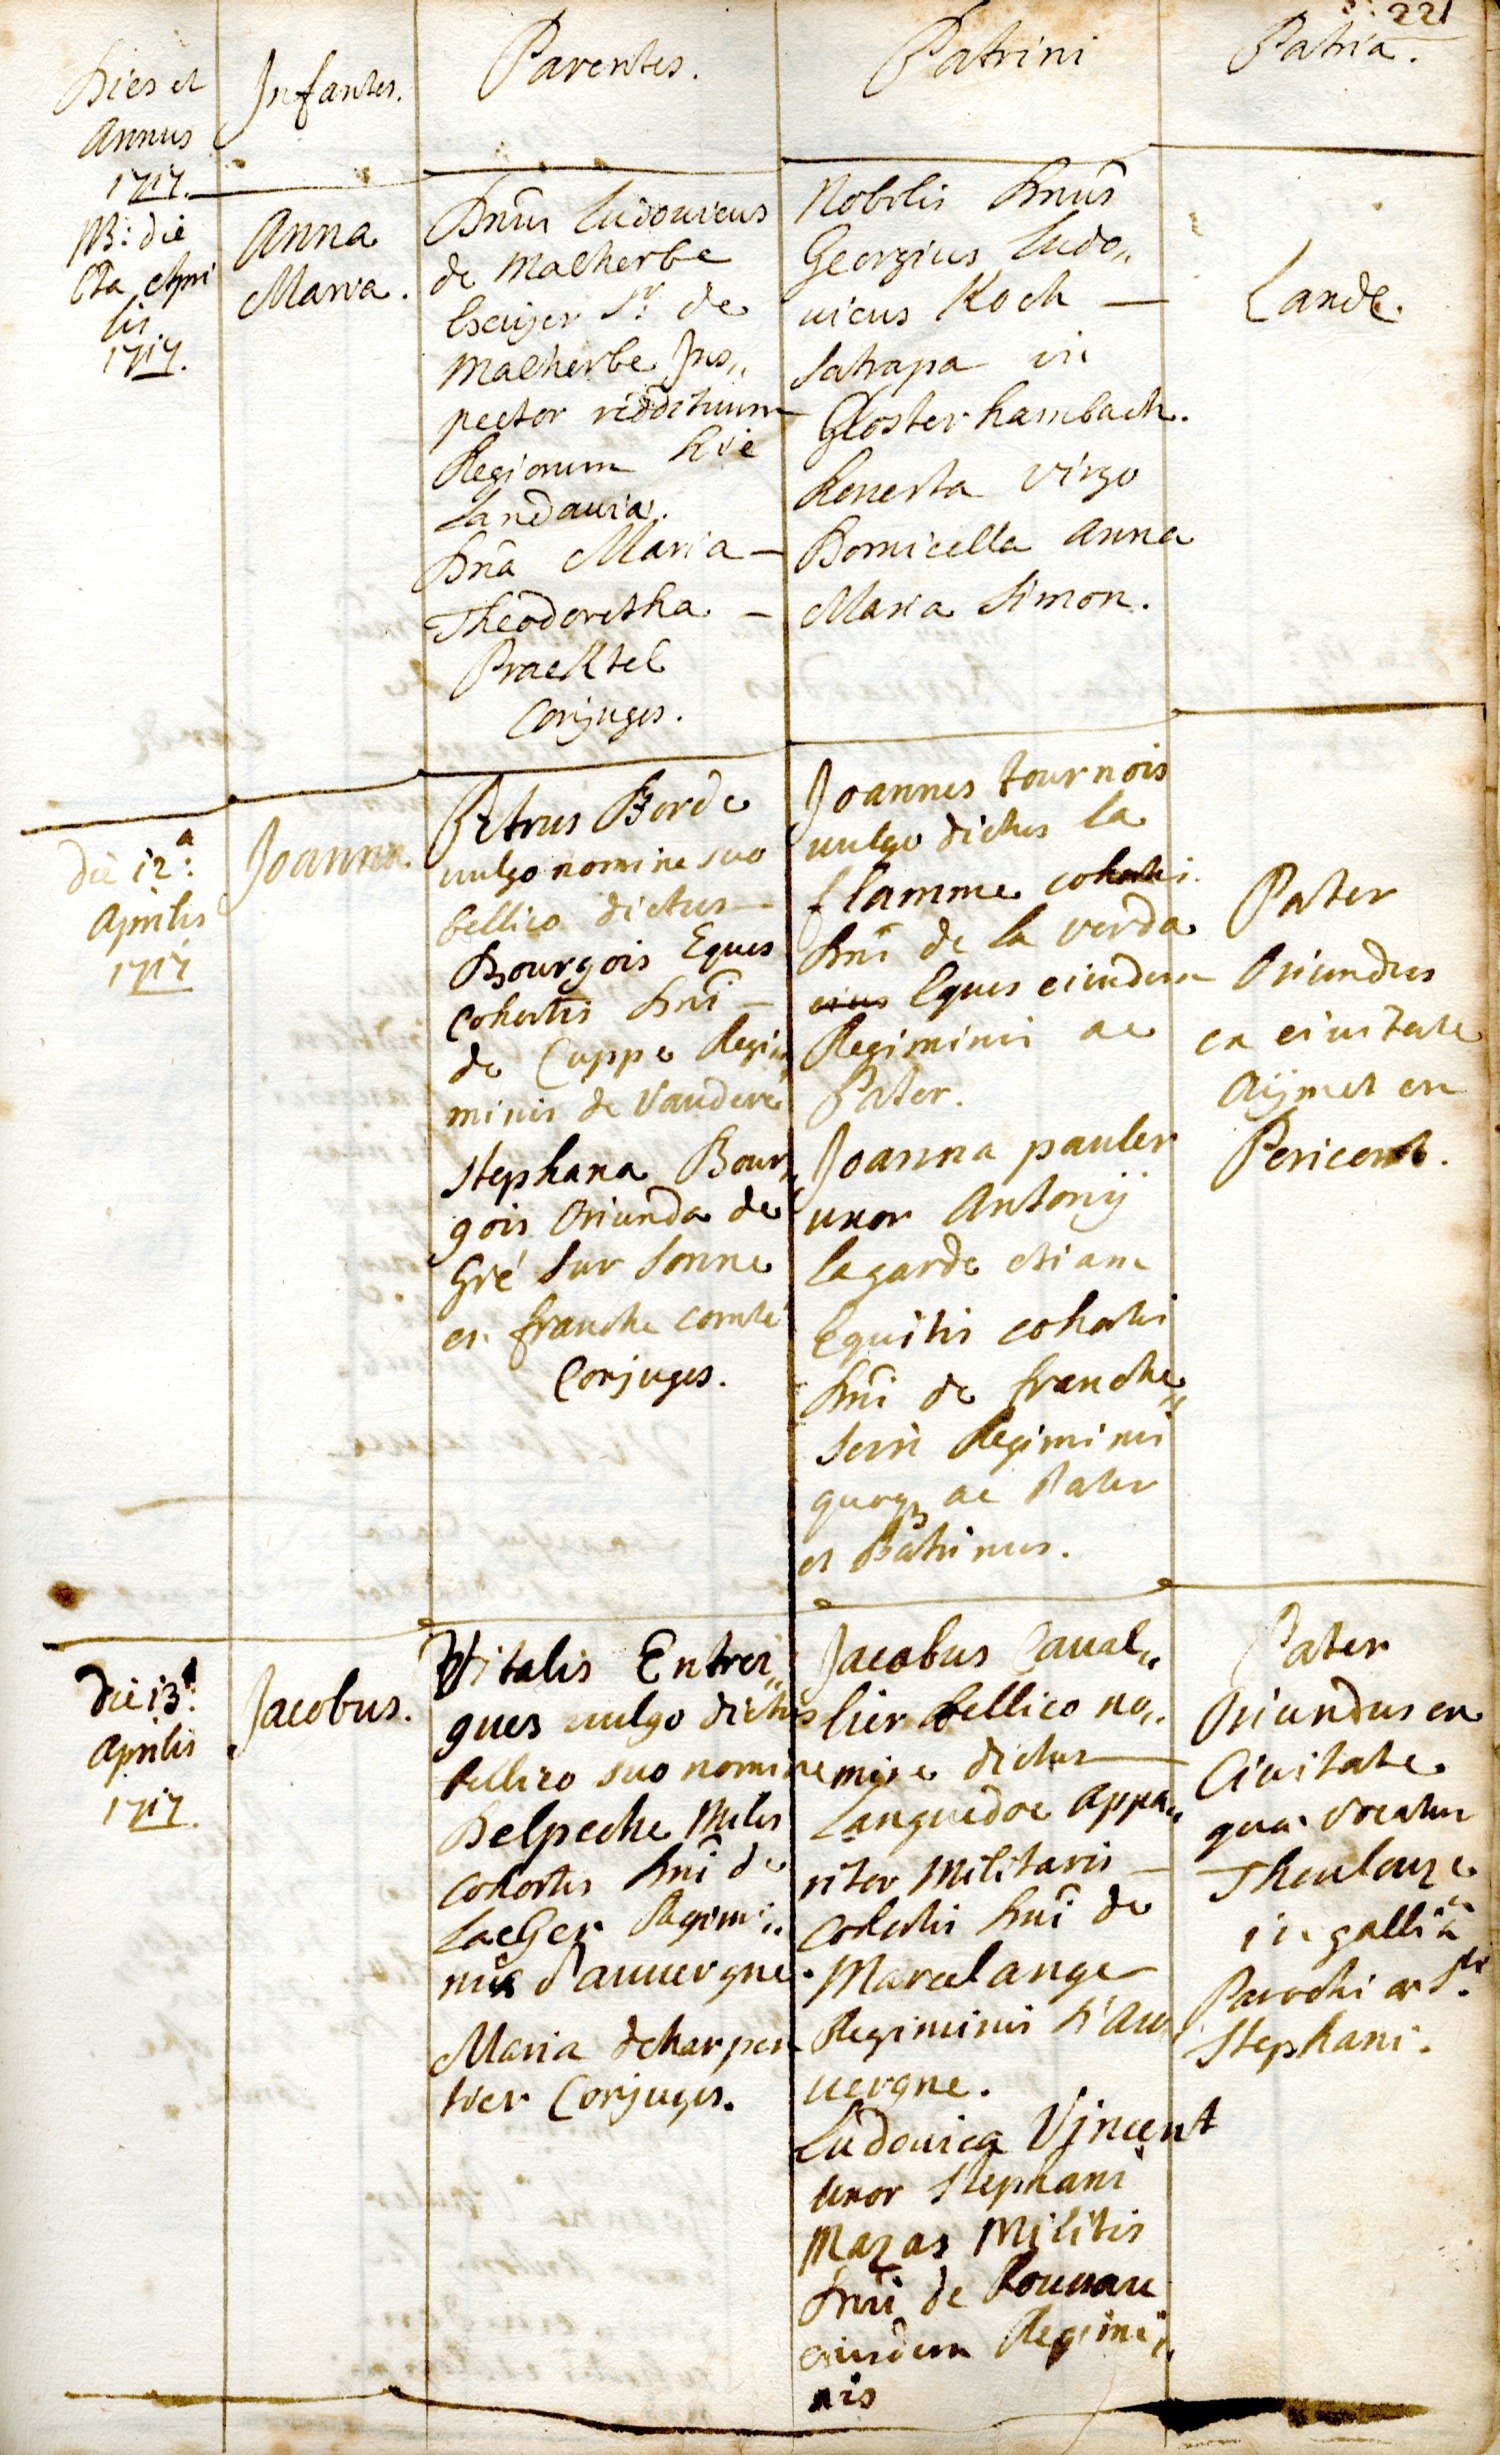 221
Dies et
Annus
1717.
Infantes.
Parentes.
Patrini
Patria.
NB: die
8va Apri
lis.
1717.
Anna
Maria.
Dnus Ludovicus
de Malherbe
Escuyer Sr. de
Malherbe Ins,,
pector reddituum
Regiorum hic
Landavia.
Dna Maria —
Theodoretha —
Praektel
Conjuges.
Nobilis Dnus
Georgius Ludo,,
vicus Koch —
Satrapa in
Closterhambach.
Honesta virgo
Domicella Anna
Maria Simon.
Land.
die 12a:
Aprilis
1717
Joanna.
Petrus Borde
vulgo nomine suo
bellico dictus —
Bourgois Eques
Cohortis Dni —
de Cuppe Regi,,
minis de Vauderé
Stephana Bour,,
gois Oriunda de
Gré sur Sonne
en franche comté
Conjuges.
Joannes tournois
vulgo dictus la
flamme cohortis
Dni de la verda
Eques eiusdem
Regiminis ac
Pater.
Joanna pauler
uxor Antonij
lagarde etiam
Equitis cohortis
Dni de franche,,
serri Regiminis
quoq3 ac Pater
et Patrinus.
Pater
Oriundus
ex civitate
Aymet en
die 13a:
Aprilis
1717.
Jacobus.
Vitalis Entrei,,
gues vulgo dictus
bellico suo nomine
Delpeche Miles
Cohortis Dni de
Lacger Regimi,,
nis d'auvergne
Maria deharpen
tier Conjuges.
Jacobus Caval,,
lier bellico no,,
mine dictus —
Languedoc Appa,,
ritor Militaris —
cohortis Dni de
Marcelange
Regiminis d'Au
vergne.
Ludovica Vincent
uxor Stephani
Mazas Militis
Dni de
eiusdem Regimi,,
nis
Pater
Oriundus ex
Civitate
qua vocatur
Thoulouze
in galliâ
Parochiae Sti
Stephani.